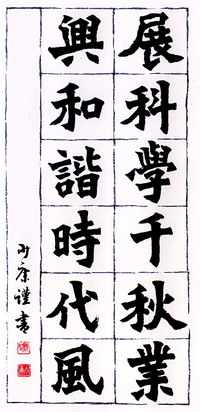 展科學千秋業
興和諧時代風
謹書